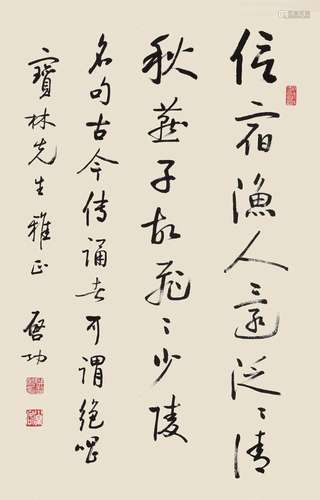 信宿渔人還泛〻清
秋燕子故飛〻少陵
名句古今传诵老可谓绝唱
寶林先生雅正
启功